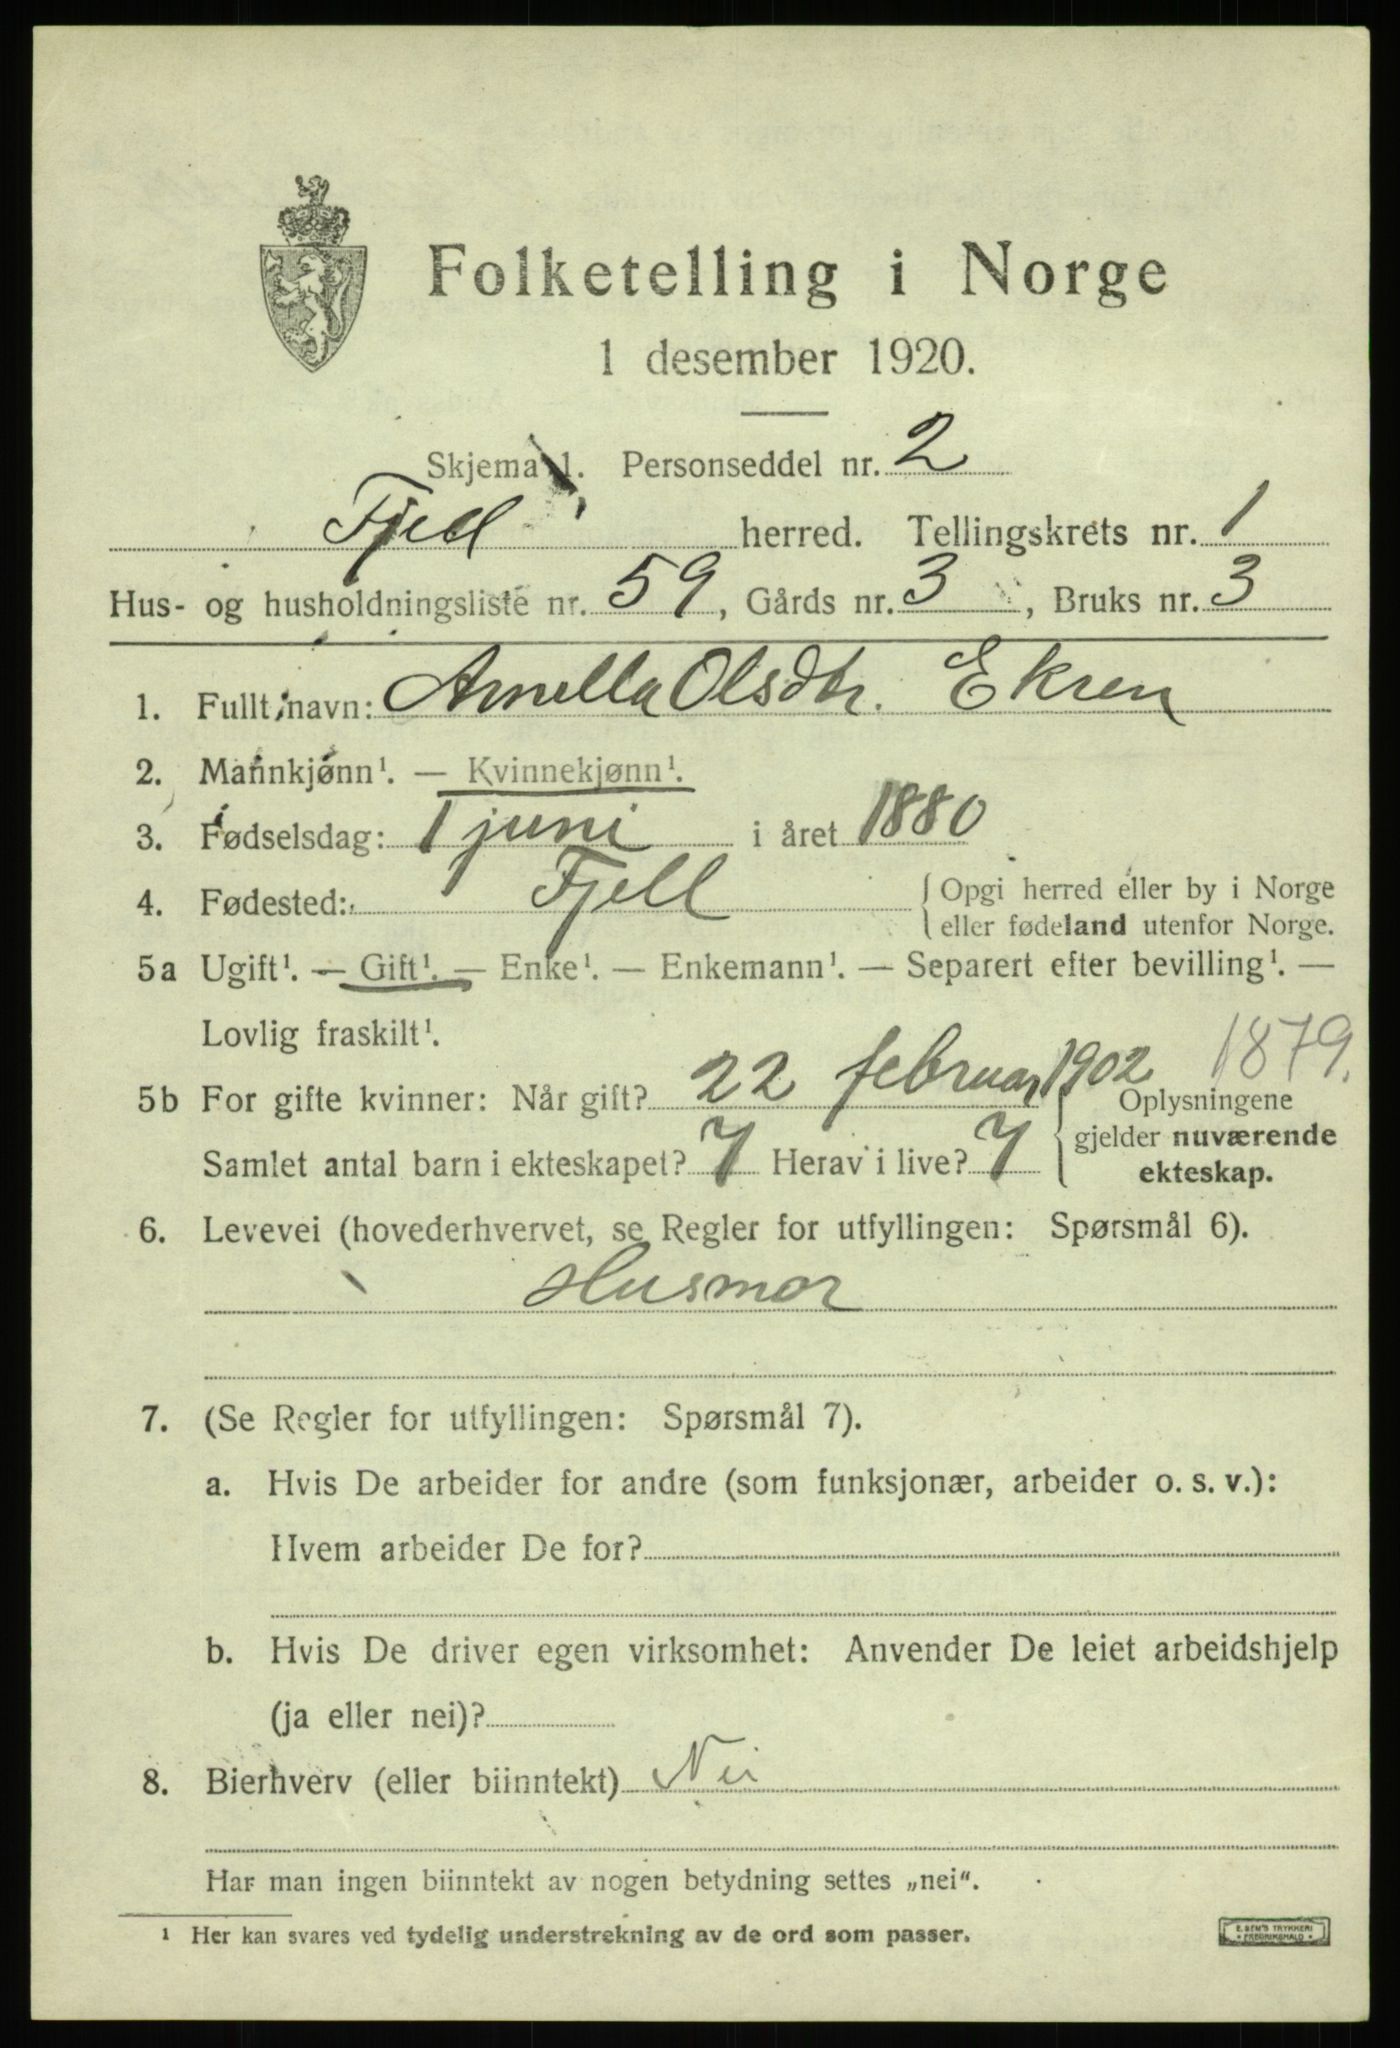 Folketelling i Norge
1 desember 1920.
Skjema 1. Personseddel nr. 2
Fjell herred. Tellingskrets nr. 1
Hus- og husholdningsliste nr. 59, Gårds nr. 3, Bruks nr. 3
1. Fullt navn: Arnella Olsdtr. Ekren
2. Mannkjønn¹. — Kvinnekjønn¹.
3. Fødselsdag: 1 juni i året 1880
4. Fødested: Fjell { Opgi herred eller by i Norge
eller fødeland utenfor Norge.
5a Ugift¹. — Gift¹. — Enke¹. — Enkemann¹. — Separert efter bevilling¹. —
Lovlig fraskilt¹.
1879.
5b For gifte kvinner: Når gift? 22 februar 1902 { Oplysningene
gjelder nuværende
Samlet antal barn i ekteskapet? 7 Herav i live? 7
ekteskap.
6. Levevei (hovederhvervet, se Regler for utfyllingen: Spørsmål 6).
Husmor
7. (Se Regler for utfyllingen: Spørsmål 7).
a. Hvis De arbeider for andre (som funksjonær, arbeider o. s. v.):
Hvem arbeider De for?
b. Hvis De driver egen virksomhet: Anvender De leiet arbeidshjelp
(ja eller nei)?
8. Bierhverv (eller biinntekt) Nei
Har man ingen biinntekt av nogen betydning settes „nei".
¹ Her kan svares ved tydelig understrekning av de ord som passer.
E. SEM'S TRYKKERI
FREDRIKSHALD